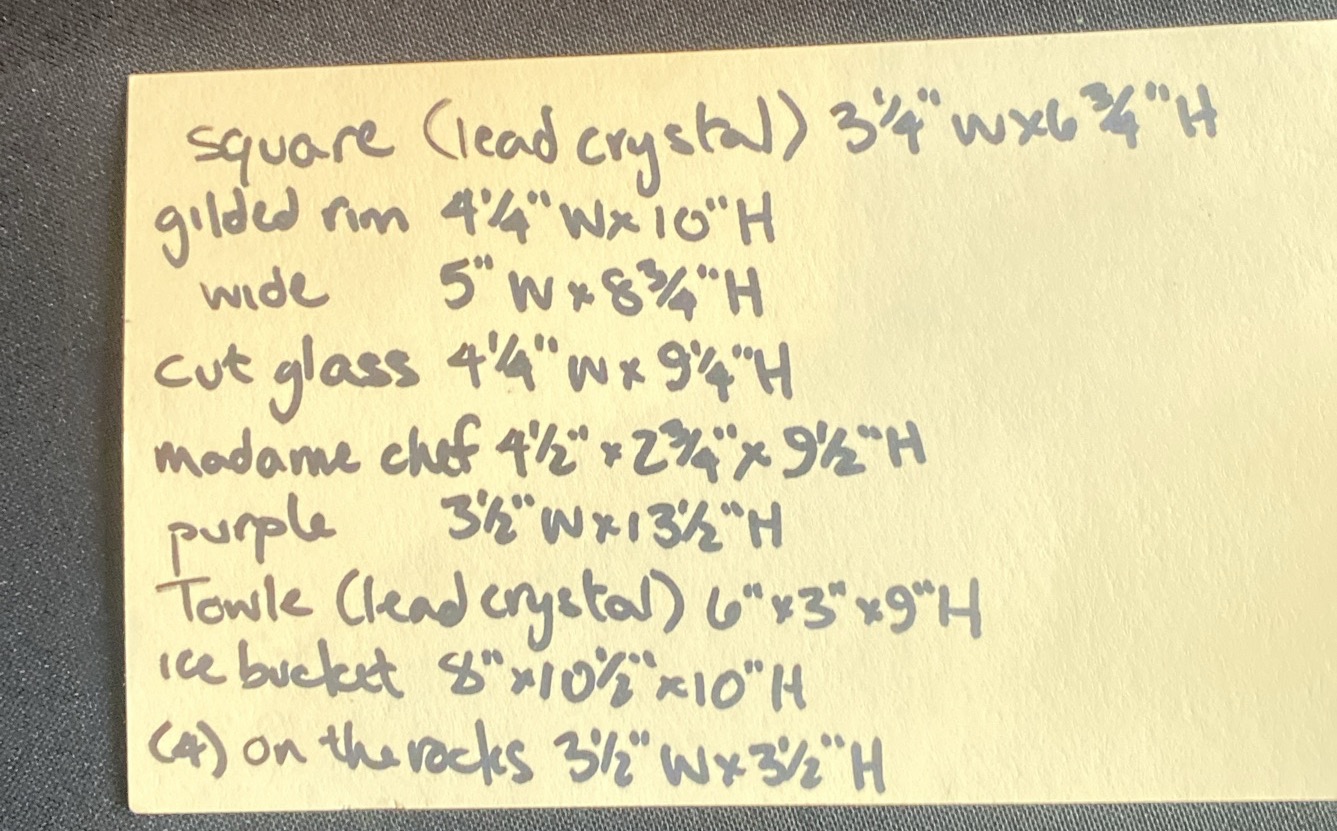 square (lead crystal) 3 1/4" W x 6 3/4" H
gilded rim 4 1/4" W x 10" H
wide 5" W x 8 3/4" H
cut glass 4 1/4" W x 9 1/4" H
madame chef 4 1/2" x 2 3/4" x 9 1/2" H
purple 3 1/2" W x 13 1/2" H
Towle (lead crystal) 6" x 3" x 9" H
ice bucket 8" x 10 1/2" x 10" H
(4) on the rocks 3 1/2" W x 3 1/2" H